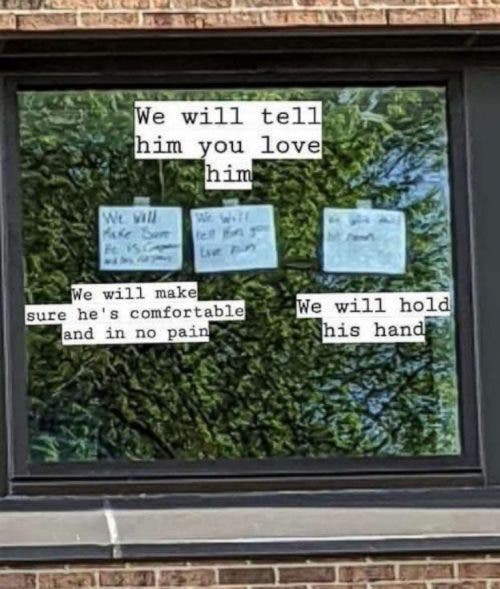 We will tell
him you love
him
We Will
Make Sure
he is
We Will
tell him you
Love him
We will make
sure he's comfortable
and in no pain
We will hold
his hand